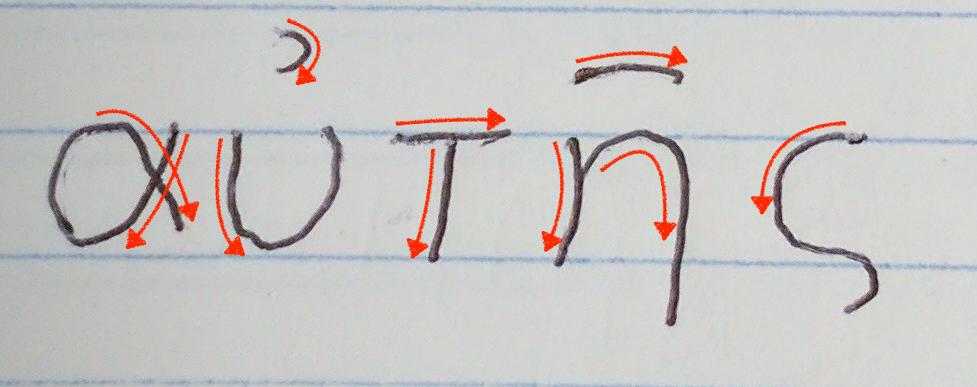 αὐτῆς